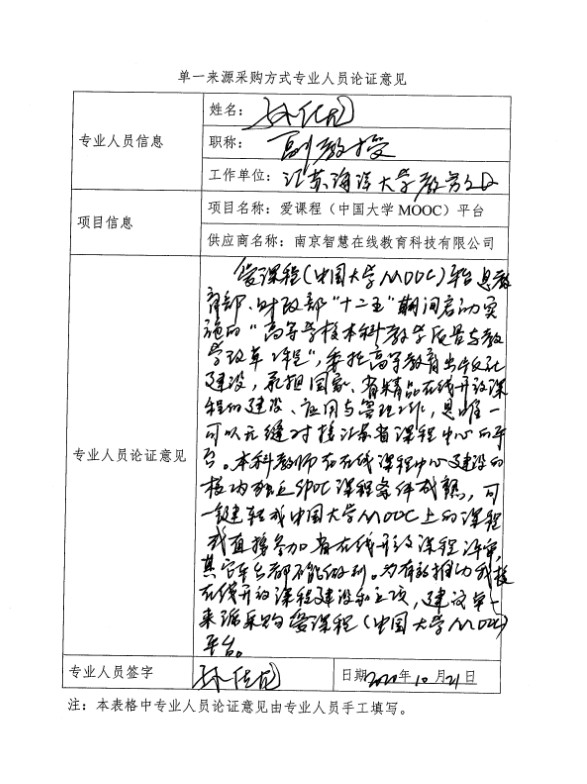 单一来源采购方式专业人员论证意见
专业人员信息
姓名：
职称：副教授
工作单位：江苏海洋大学教务处
项目信息
项目名称：爱课程（中国大学MOOC）平台
供应商名称：南京智慧在线教育科技有限公司
专业人员论证意见
爱课程（中国大学MOOC）平台是教
育部、财政部“十二五”期间启动实
施的“高等学校本科教学质量与教
学改革工程”，委托高等教育出版社
建设，承担国家、省精品在线开放课
程的建设、应用与管理工作，是唯一
可以无缝对接江苏省课程中心的平
台。本科教师在在线课程中心建设的
校内独立SPOC课程条件成熟，可
一键建转成中国大学MOOC上的课程
或直接参加省在线开放课程评审，
其它平台都不能做到。为有效推动我校
在线开放课程建设和立项，建议单一
来源采购爱课程（中国大学MOOC）
平台。
专业人员签字
日期2020年10月21日
注：本表格中专业人员论证意见由专业人员手工填写。